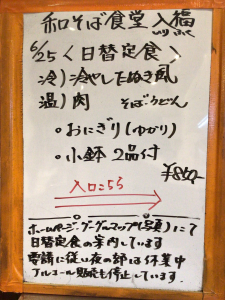 和そば食堂 入福
いりふく
6/25 〈日替定食〉
冷) 冷やしたぬき風
温) 肉 そば・うどん
・おにぎり(ゆかり)
・小鉢 2品付
¥850-
入口こちら
ホームページ・グーグルマップ(写真)にて
日替定食の案内しています
要請に従い夜の部は休業中
アルコール販売も停止しています.